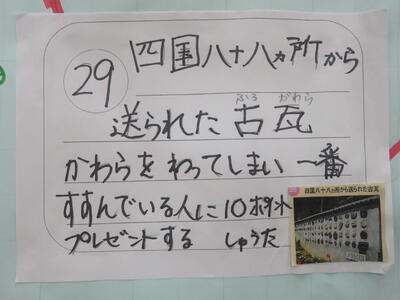 29
四国八十八ヵ所から
送られた古瓦
ふる がわら
かわらをわってしまい一番
すすんでいる人に10ポイント
プレゼントする しゅうた
四国八十八ヵ所から送られた古瓦